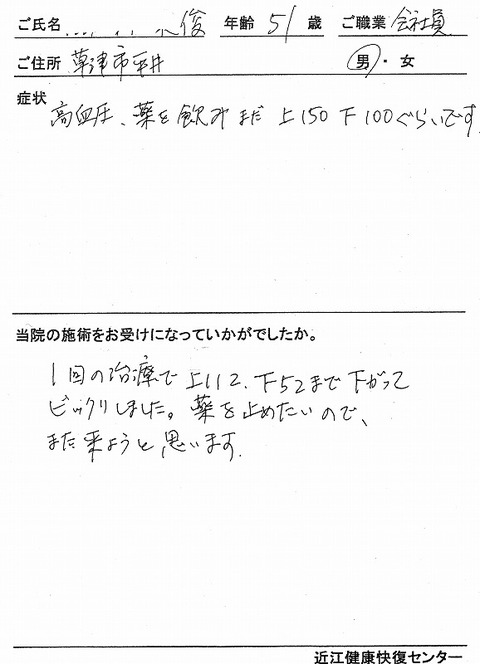 ご氏名 俊 年齢 51 歳 ご職業 会社員
ご住所 草津市平井 男・女
症状
高血圧、薬を飲みまだ 上150 下100ぐらいです
当院の施術をお受けになっていかがでしたか。
1回の治療で上112、下52まで下がって
ビックリしました。薬を止めたいので、
また来ようと思います。
近江健康快復センター